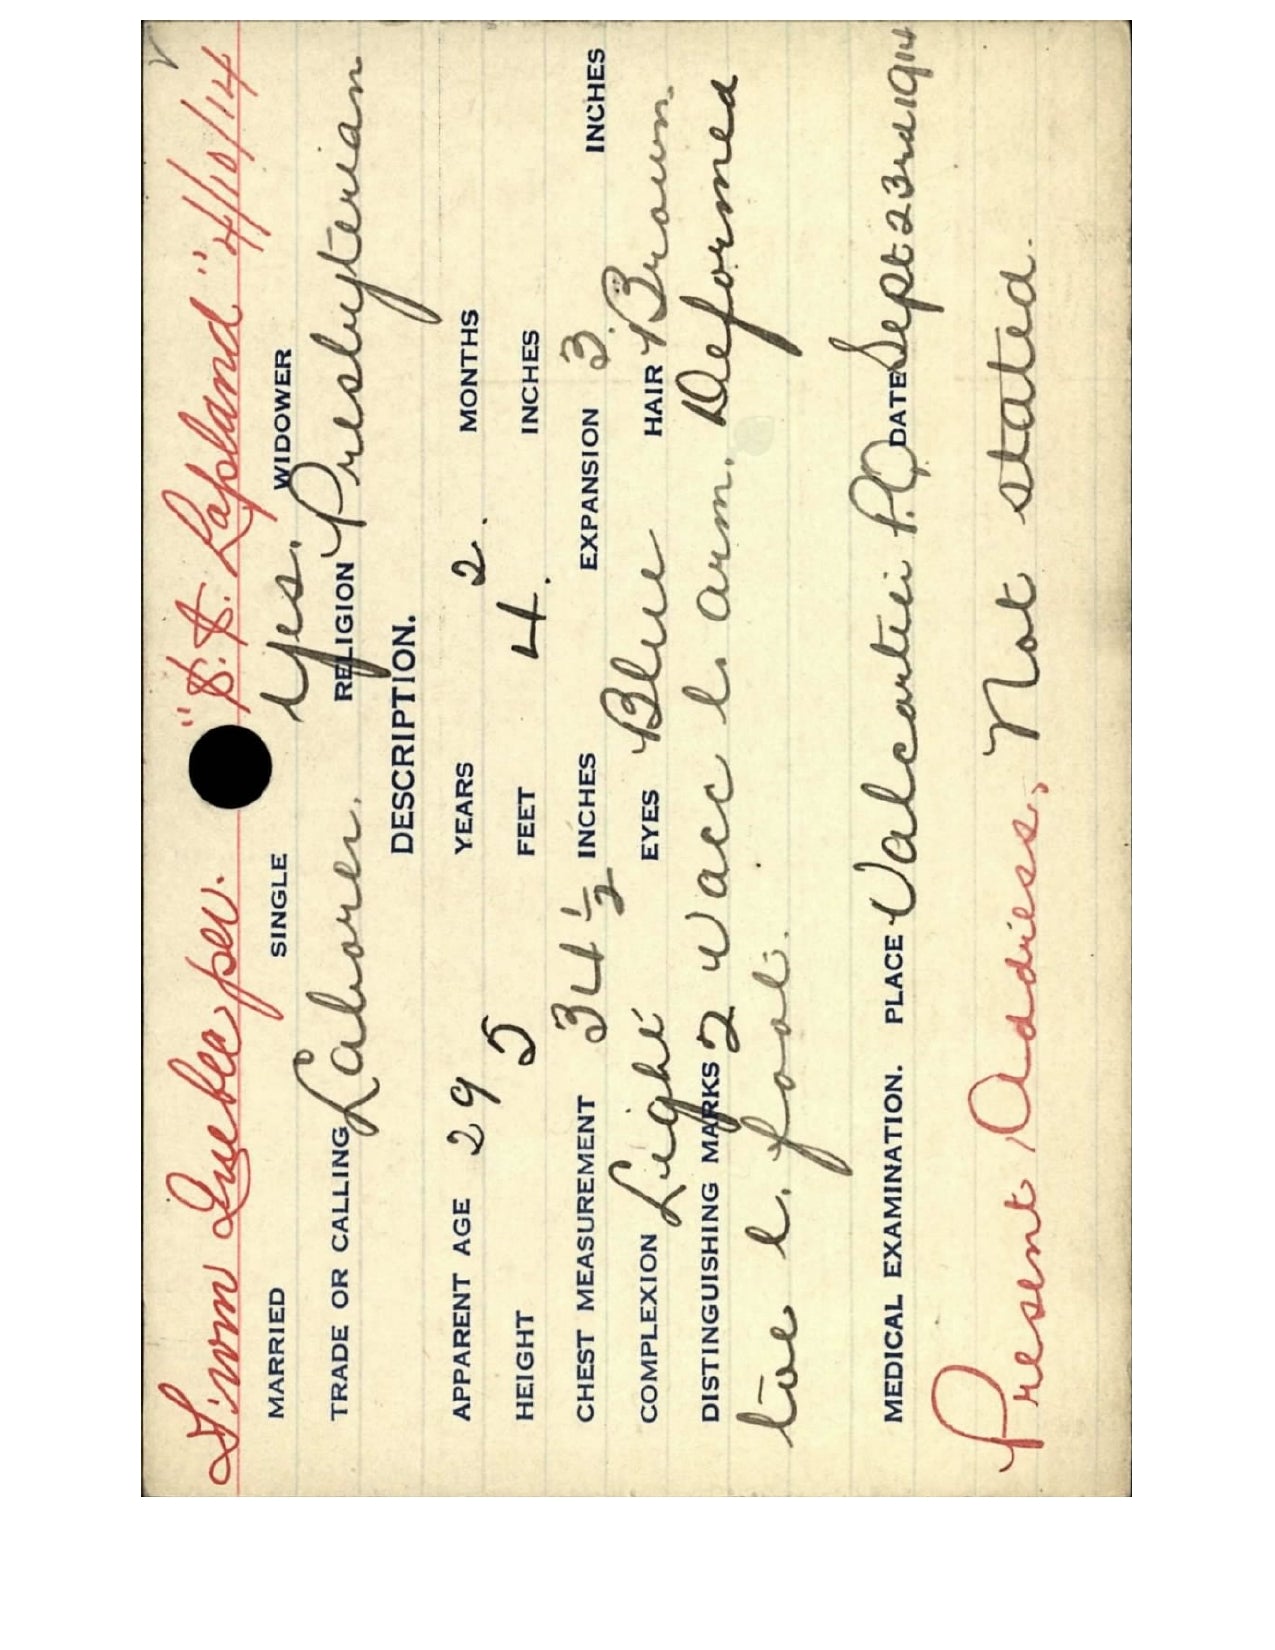 From Quebec per. "S.S. Lapland" 4/10/14
MARRIED SINGLE Yes. WIDOWER
TRADE OR CALLING Laborer. RELIGION Presbyterian
DESCRIPTION.
APPARENT AGE 29 YEARS 2. MONTHS
HEIGHT 5 FEET 4. INCHES
CHEST MEASUREMENT 34 1/2 INCHES EXPANSION 3. INCHES
COMPLEXION Light EYES Blue HAIR Brown.
DISTINGUISHING MARKS 2 vacc l. arm. Deformed
toe l. foot.
MEDICAL EXAMINATION. PLACE Valcartier P.Q. DATE Sept 23rd 1914
Present Address, Not stated.